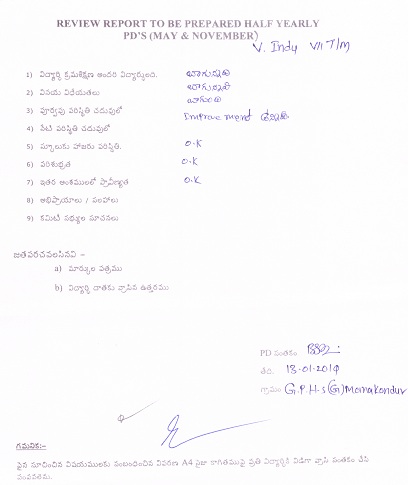 REVIEW REPORT TO BE PREPARED HALF YEARLY
PD'S (MAY & NOVEMBER)
V. Indu VII T/M
1) విద్యార్థి క్రమశిక్షణ అందరి విద్యార్థులది. బాగున్నది
2) వినయ విధేయతలు బాగున్నది
3) పూర్వపు పరిస్థితి చదువులో బాగుంది
4) నేటి పరిస్థితి చదువులో Improvement ఉన్నది
5) స్కూలుకు హాజరు పరిస్థితి. O.K
6) పరిశుభ్రత O.K
7) ఇతర అంశములలో ప్రావీణ్యత O.K
8) అభిప్రాయాలు / సలహాలు
9) కమిటీ సభ్యుల సూచనలు
జతపరచవలసినవి –
a) మార్కుల పత్రము
b) విద్యార్థి దాతకు వ్రాసిన ఉత్తరము
PD సంతకం
తేది. 18-01-2019
గ్రామం G.P.H.S(G) Momakondur
గమనిక:-
పైన సూచించిన విషయములకు సంబంధించిన వివరణ A4 సైజు కాగితముపై ప్రతి విద్యార్థికి విడిగా వ్రాసి సంతకం చేసి
పంపవలెను.